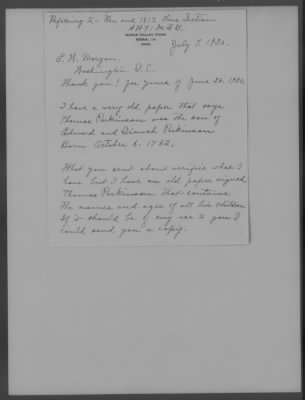 Referring to - Rev and 1812 Wars Section
MAPLE VALLEY FARM
July 7, 1930.
E. W. Morgan,
Washington, D.C.
Thank you! for yours of June 26, 1930.
I have a very old paper that says
Thomas Parkinson was the son of
Edward and Dianah Parkinson
Born October 6. 1762.
What you sent about verifies what I
have but I have an old paper signed
Thomas Parkinson that contains
the names and ages of all his children
If it should be of any use to you I
could send you a copy.